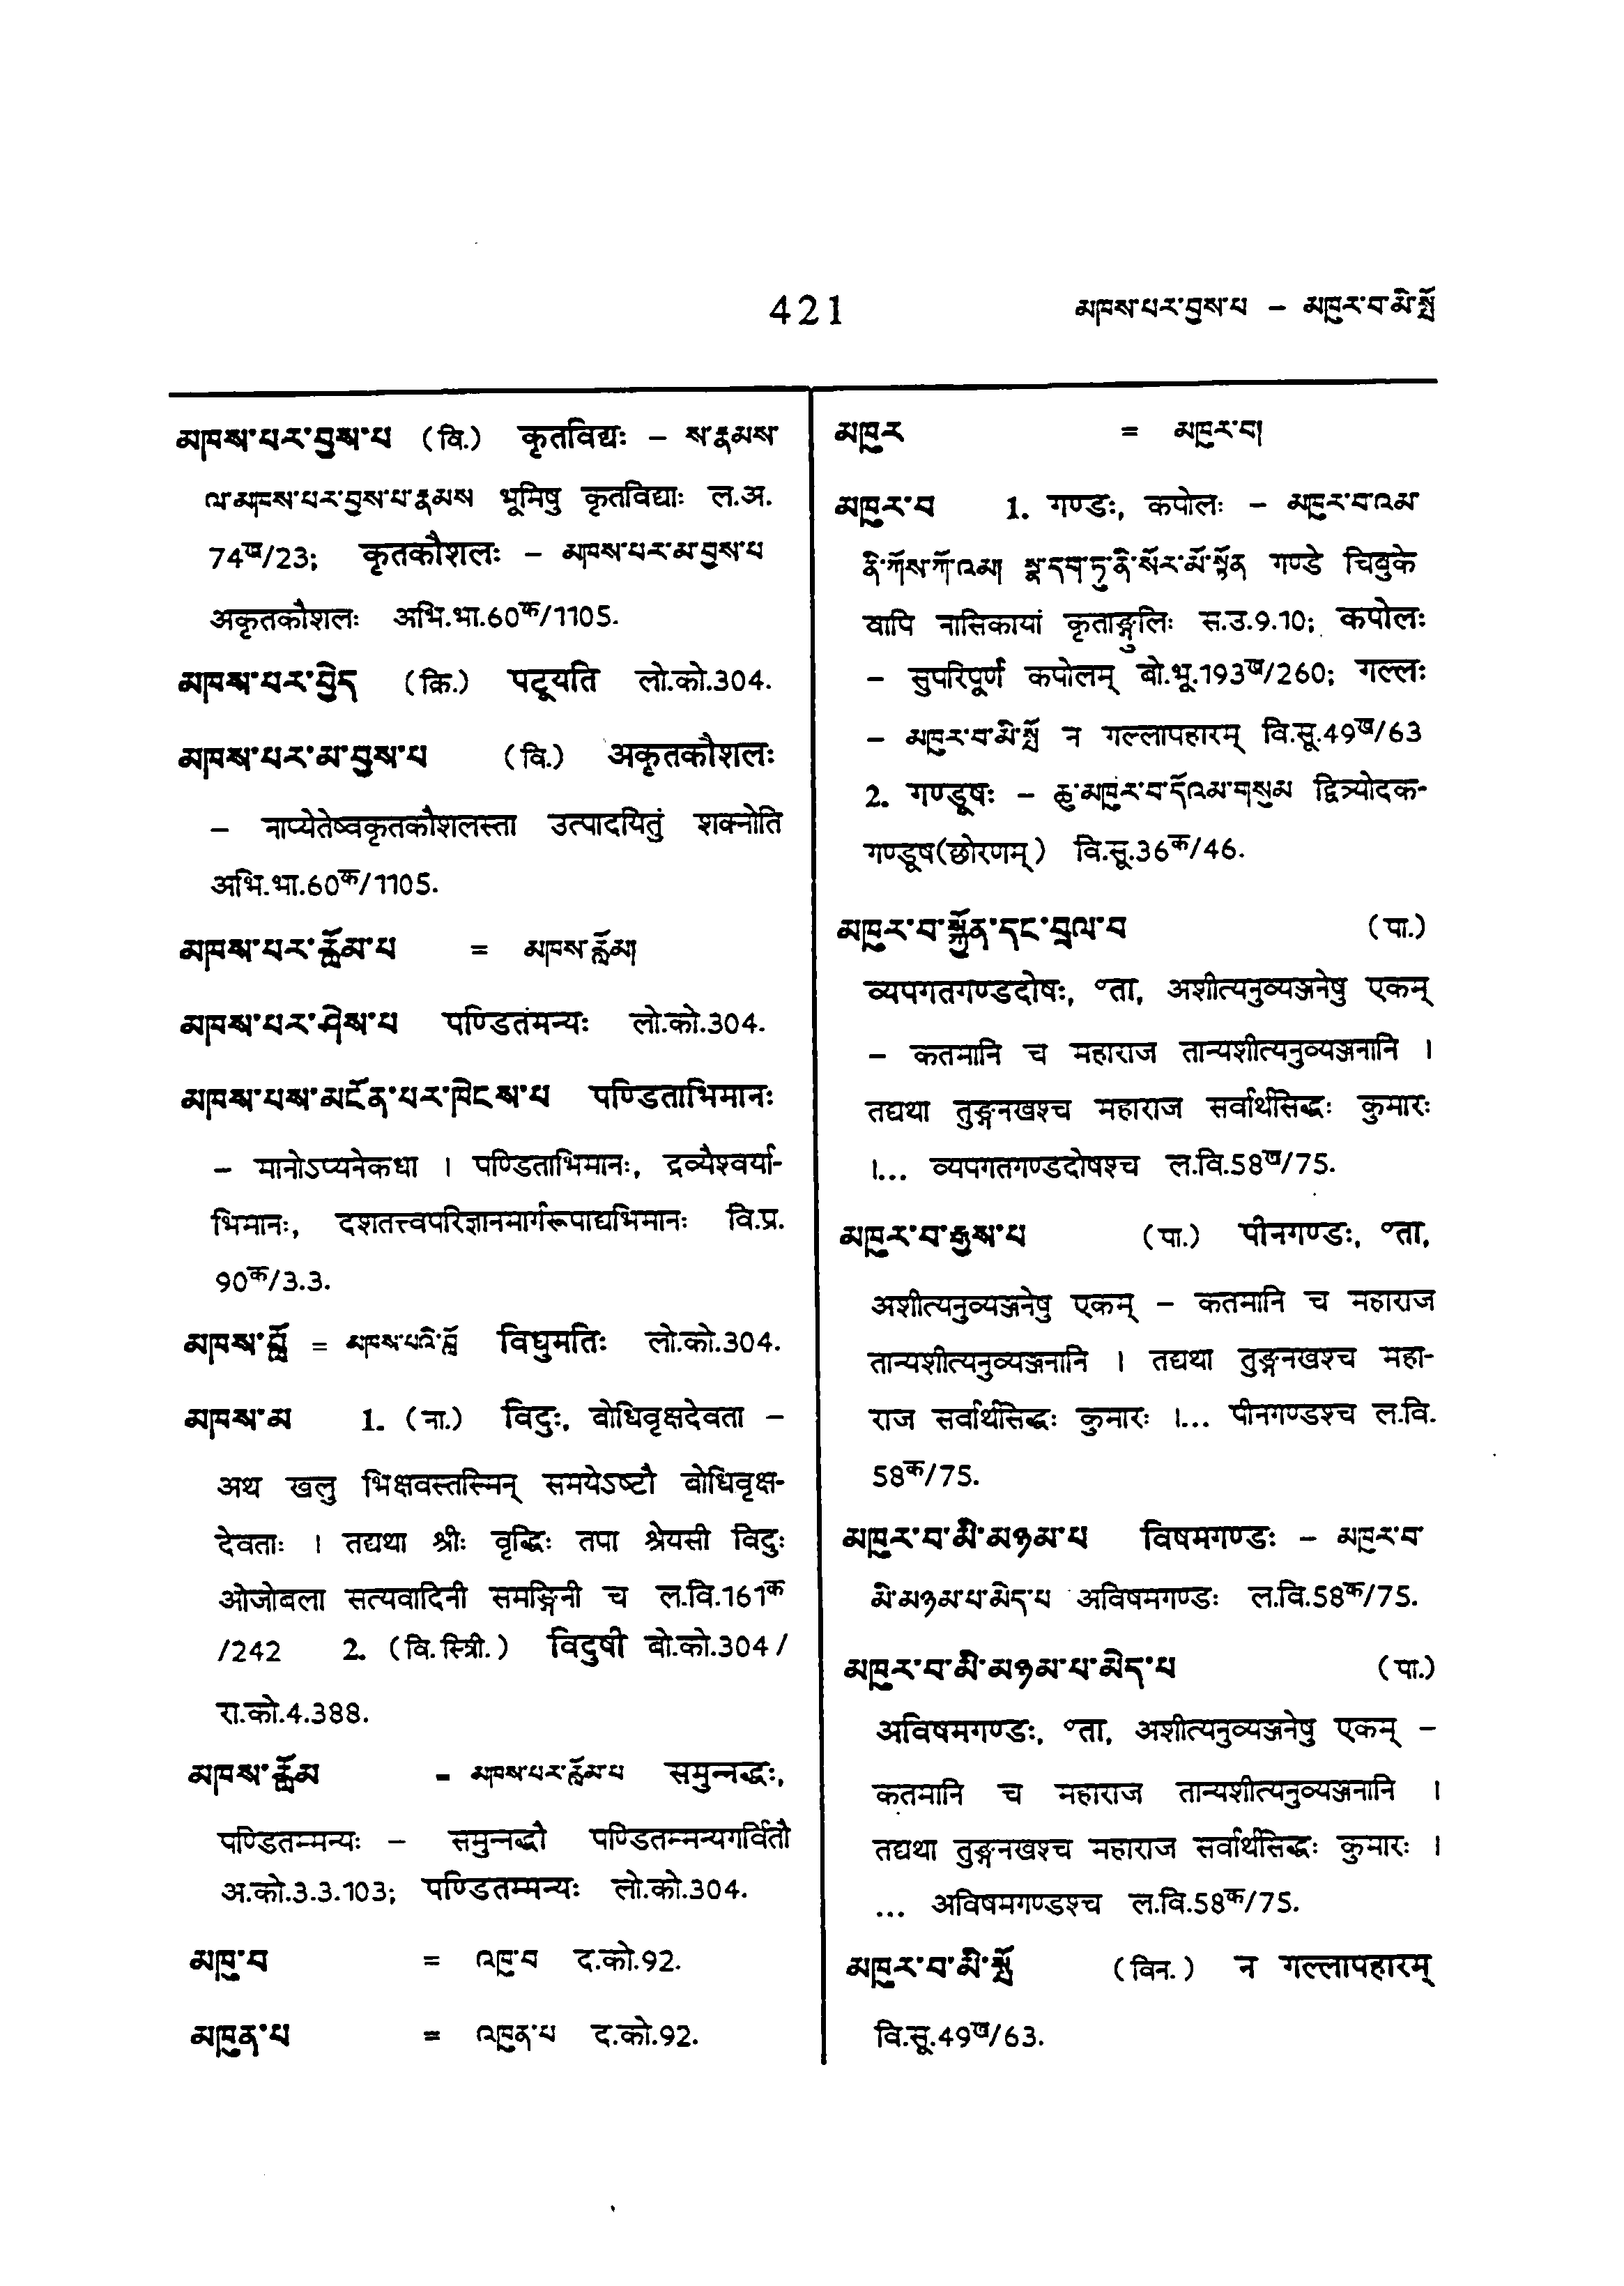 421
མཁས་པར་བྱས་པ – མཁུར་བ་མི་སྤོ
མཁས་པར་བྱས་པ (वि.) कृतविद्यः – ས་རྣམས་
ལ་མཁས་པར་བྱས་པ་རྣམས भूमिषु कृतविद्याः ल.अ.
74ख/23; कृतकौशलः – མཁས་པར་མ་བྱས་པ
अकृतकौशलः अभि.भा.60क/1105.
མཁས་པར་བྱེད (क्रि.) पटूयति लो.को.304.
མཁས་པར་མ་བྱས་པ (वि.) अकृतकौशलः
– नाप्येतेष्वकृतकौशलस्ता उत्पादयितुं शक्नोति
अभि.भा.60क/1105.
མཁས་པར་རློམ་པ = མཁས་རློམ།
མཁས་པར་ཤེས་པ पण्डितंमन्यः लो.को.304.
མཁས་པས་མངོན་པར་ཁེངས་པ पण्डिताभिमानः
– मानोऽप्यनेकधा । पण्डिताभिमानः, द्रव्यैश्वर्या-
भिमानः, दशतत्त्वपरिज्ञानमार्गरूपाद्यभिमानः वि.प्र.
90क/3.3.
མཁས་བློ = མཁས་པའི་བློ विधुमतिः लो.को.304.
མཁས་མ 1. (ना.) विदुः, बोधिवृक्षदेवता –
अथ खलु भिक्षवस्तस्मिन् समयेऽष्टौ बोधिवृक्ष-
देवताः । तद्यथा श्रीः वृद्धिः तपा श्रेयसी विदुः
ओजोबला सत्यवादिनी समङ्गिनी च ल.वि.161क
/242 2. (वि.स्त्री.) विदुषी बो.को.304/
रा.को.4.388.
མཁས་རློམ = མཁས་པར་རློམ་པ समुन्नद्धः,
पण्डितम्मन्यः – समुन्नद्धौ पण्डितम्मन्यगर्वितौ
अ.को.3.3.103; पण्डितम्मन्यः लो.को.304.
མཁུ་བ = འཁུ་བ द.को.92.
མཁུན་པ = འཁུན་པ द.को.92.
མཁུར = མཁུར་བ།
མཁུར་བ 1. गण्डः, कपोलः – མཁུར་བ་འམ་
ནི་ཀོས་ཀོ་འམ། སྣ་དག་ཏུ་ནི་སོར་མོ་སྟོན गण्डे चिबुके
वापि नासिकायां कृताङ्गुलिः स.उ.9.10; कपोलः
– सुपरिपूर्ण कपोलम् बो.भू.193ख/260; गल्लः
– མཁུར་བ་མི་སྤོ न गल्लापहारम् वि.सू.49ख/63
2. गण्डूषः – ཆུ་མཁུར་བ་དོའམ་གསུམ द्वित्र्योदक-
गण्डूष(छोरणम्) वि.सू.36क/46.
མཁུར་བ་སྐྱོན་དང་བྲལ་བ (पा.)
व्यपगतगण्डदोषः, °ता, अशीत्यनुव्यञ्जनेषु एकम्
– कतमानि च महाराज तान्यशीत्यनुव्यञ्जनानि ।
तद्यथा तुङ्गनखश्च महाराज सर्वार्थसिद्धः कुमारः
।... व्यपगतगण्डदोषश्च ल.वि.58ख/75.
མཁུར་བ་རྒྱས་པ (पा.) पीनगण्डः, °ता,
अशीत्यनुव्यञ्जनेषु एकम् – कतमानि च महाराज
तान्यशीत्यनुव्यञ्जनानि । तद्यथा तुङ्गनखश्च महा-
राज सर्वार्थसिद्धः कुमारः ।... पीनगण्डश्च ल.वि.
58क/75.
མཁུར་བ་མི་མཉམ་པ विषमगण्डः – མཁུར་བ་
མི་མཉམ་པ་མེད་པ अविषमगण्डः ल.वि.58क/75.
མཁུར་བ་མི་མཉམ་པ་མེད་པ (पा.)
अविषमगण्डः, °ता, अशीत्यनुव्यञ्जनेषु एकम् –
कतमानि च महाराज तान्यशीत्यनुव्यञ्जनानि ।
तद्यथा तुङ्गनखश्च महाराज सर्वार्थसिद्धः कुमारः ।
... अविषमगण्डश्च ल.वि.58क/75.
མཁུར་བ་མི་སྤོ (विन.) न गल्लापहारम्
वि.सू.49ख/63.